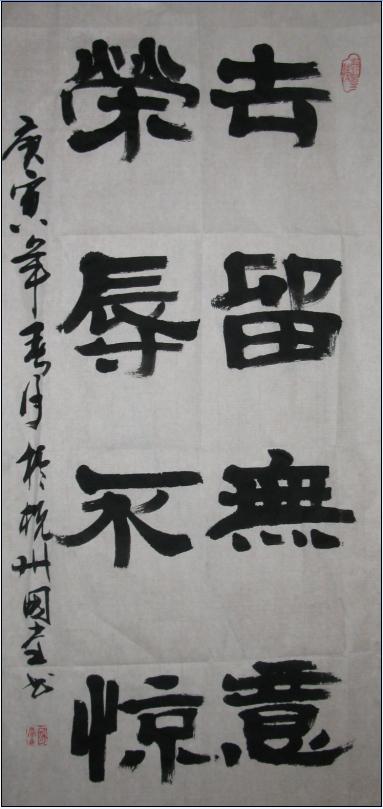 去留無意
榮辱不惊
庚寅年春月於杭州國金书